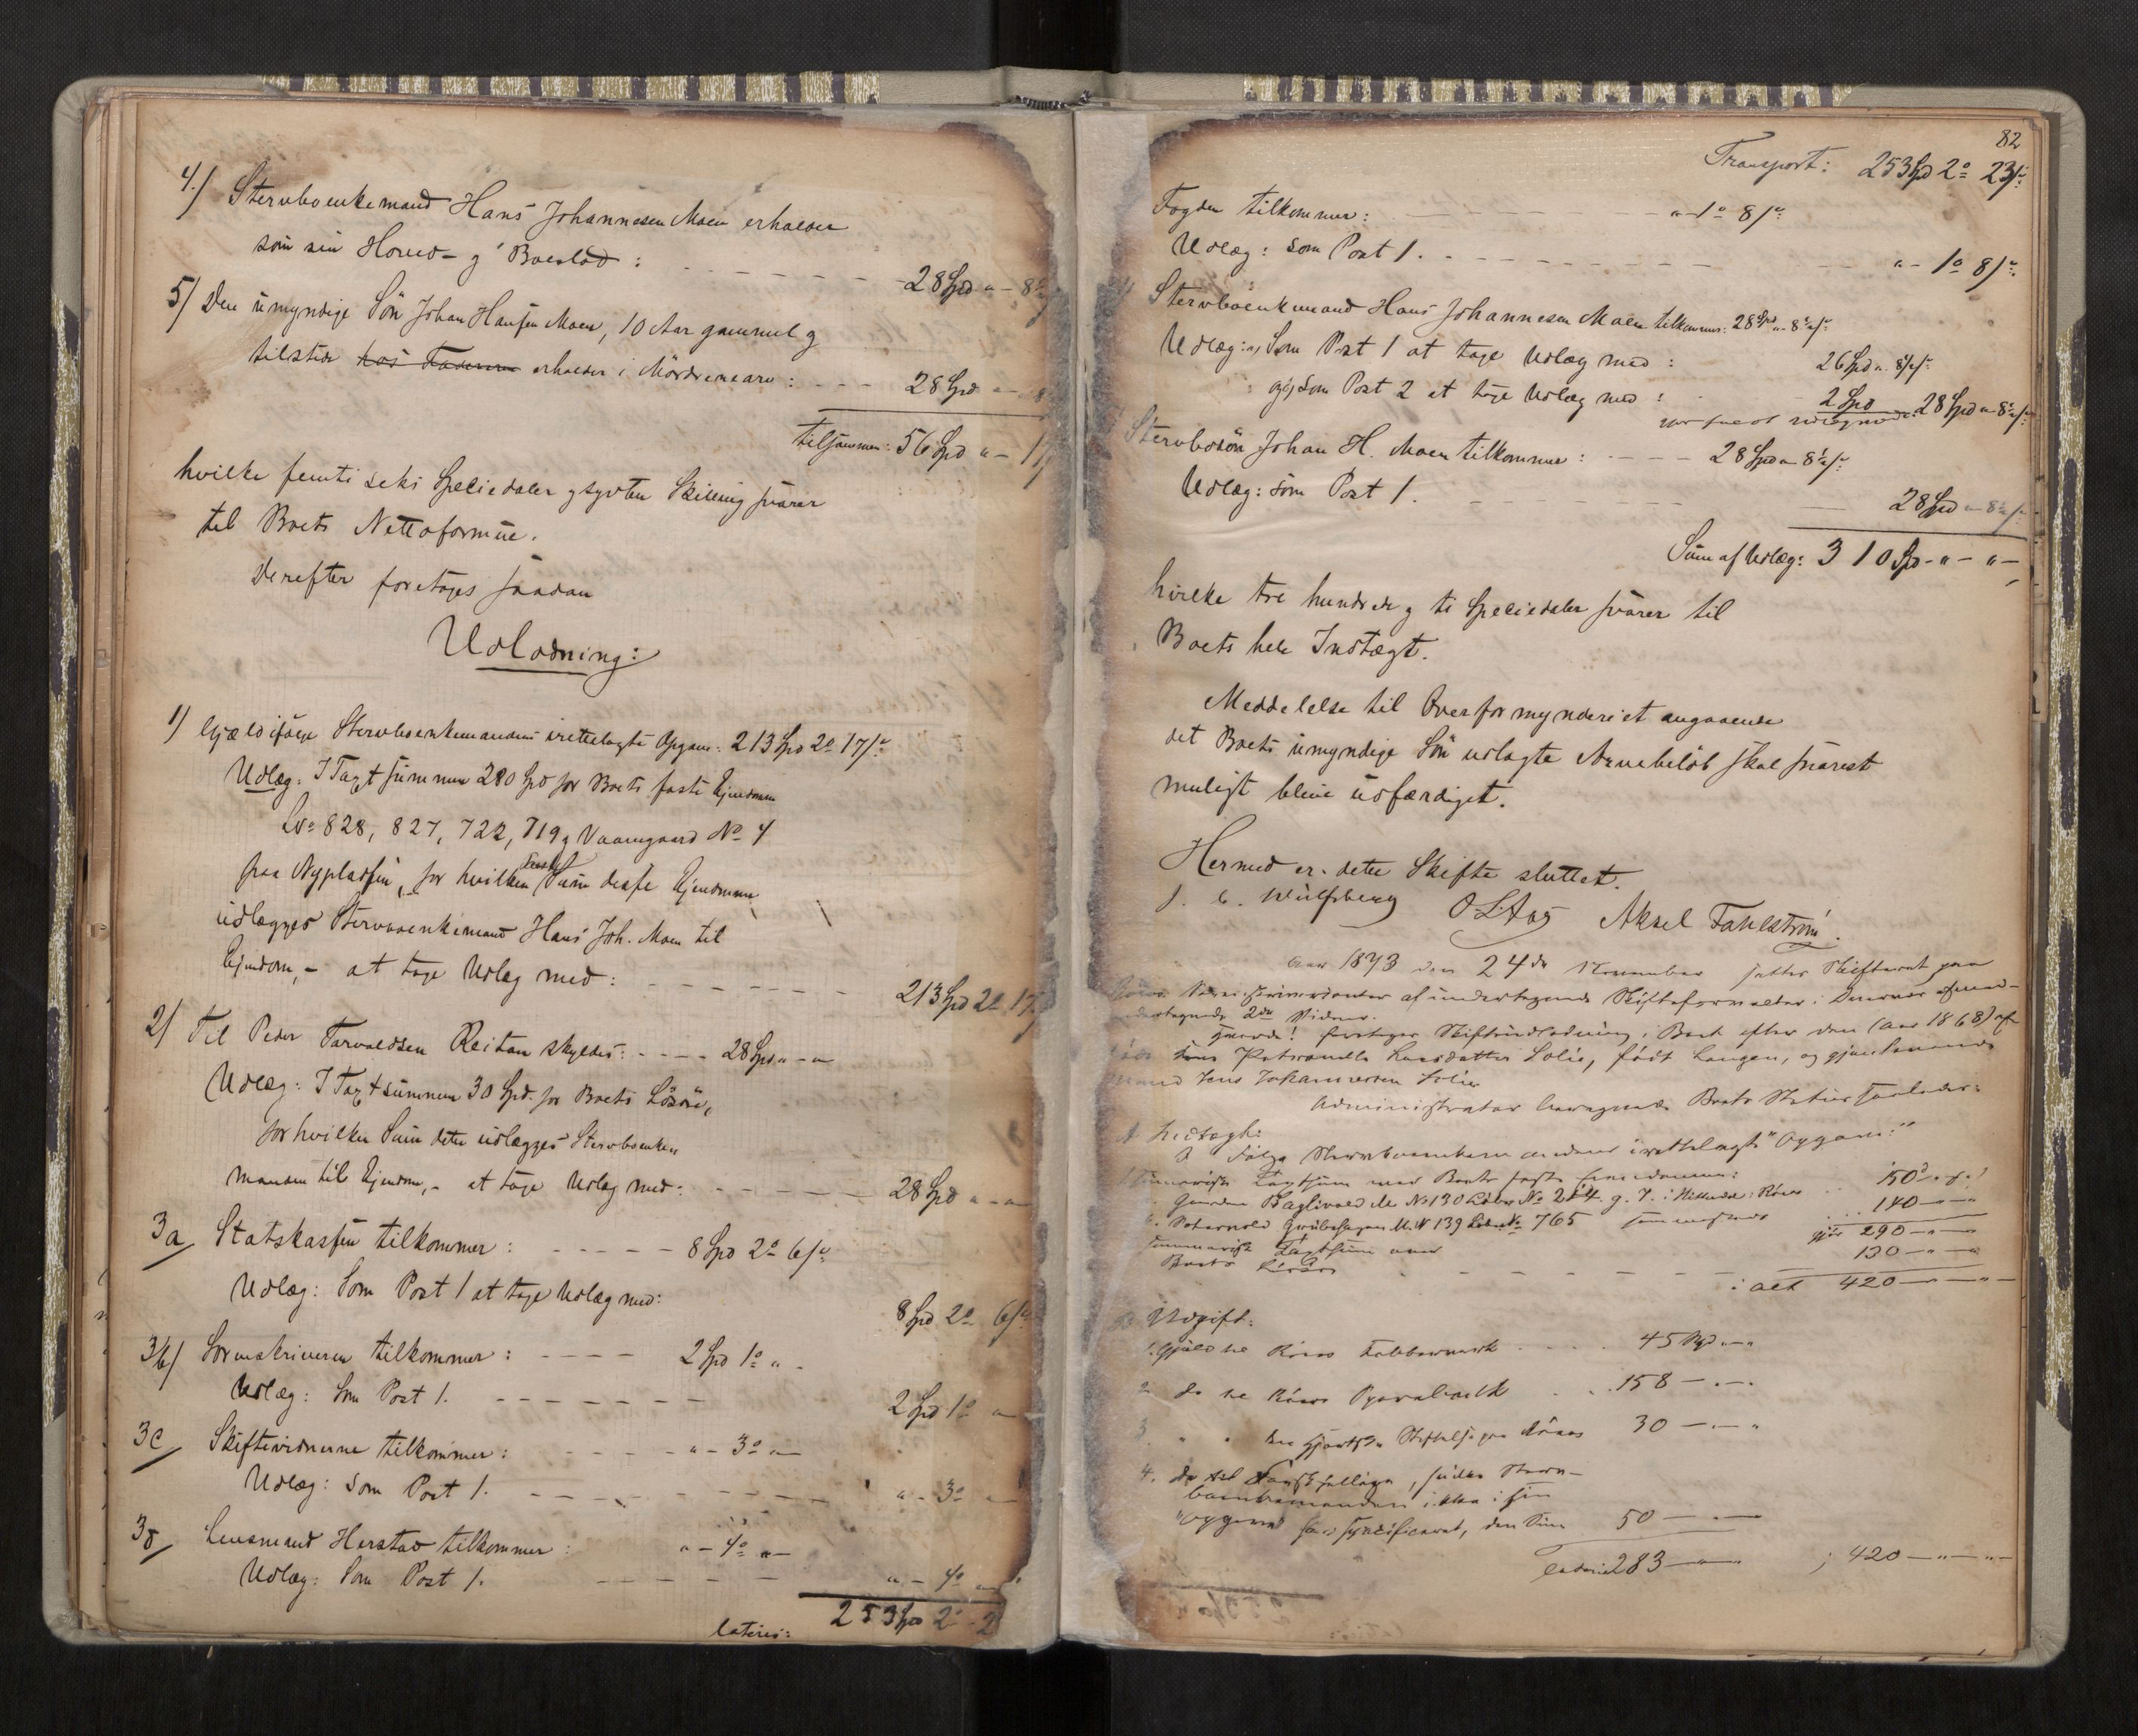 4./ Stervboenkemand Hans Johannesen Moen erholder
som sin Hoved- og Boeslod : - - - - - - - 28 Spd " - 8
5/ Den umyndige Sön Johan Hansen Moen, 10 Aar gammel og
tilstede hos Faderen erholder i Mödrenearv : - - - 28 Spd " - 8
tilsammen: 56 Spd " - 17
hvilke femti seks Speciedaler og sytten Skilling svarer
til Boets Nettoformue.
Derefter foretages saadan
Udlodning:
1) Gjæld ifølge Stervboenkemandens irettelagte Opgave: 213 Spd 2o 17 s
Udlæg: I Taxtsummen 280 Spd for Boets faste Ejendomme
Lno 828, 827, 722, 719 og Vaaningaard No 4
paa Nypladsen, for hvilken Taxt Sum disse Ejendomme
udlægges Stervboenkemand Hans Joh. Moen til
Ejendom, - at tage Udlæg med: - - - - - - - 213 Spd 2o 17
2/ Til Peder Tarvaldsen Reitan skyldes: - - - - 28 Spd " - "
Udlæg: I Taxtsummen 30 Spd. for Boets Lösöre,
for hvilken Sum dette udlægges Stervboenke
manden til Ejendom, - at tage Udlæg med: - - - - - - - 28 Spd " - "
3a/ Statskassen tilkommer: - - - - - 8 Spd 2o 6 s
Udlæg: Som Post 1 at tage Udlæg med: 8 Spd 2o 6 s
3b/ Sorenskriveren tilkommer: - - - - 2 Spd 1o " -
Udlæg: Som Post 1. - - - - - - - 2 Spd 1o "
3c/ Skiftevidnerne tilkommer: - - - - - " - 3o " -
Udlæg: Som Post 1. - - - - - - - - " - 3o
3d/ Lensmand Harstad tilkommer: " - 4o " -
Udlæg: Som Post 1. - - - - - " - 4o "
lateris: 253 Spd 2o - 2
82
Transport: 253 Spd 2o 23 s
Fogden tilkommer: - - - - - " - 1o 8 s
Udlæg: Som Post 1. - - - - - - - - - " - 1o 8 s
Stervboenkemand Hans Johannesen Moen tilkommer: 28 Spd " - 8 1/2 s
Udlæg: a, Som Post 1 at tage Udlæg med : 26 Spd " 8 1/2 s
og, Som Post 2 at tage Udlæg med : 2 Spd 28 Spd " 8 1/2 s
Stervbosön Johan H. Moen tilkommer: - - - - 28 Spd " 8 1/2 s
Udlæg: Som Post 1. - - - - 28 Spd " 8 1/2 s
Sum af Udlæg: 310 Spd - " - " -
hvilke tre hundrede og ti Speciedaler svarer til
Boets hele Indtægt.
Meddelelse til Overformynderiet angaaende
det Boets umyndige Sön udlagte Arvebelöb skal snarest
muligt blive udfærdiget.
Hermed er dette Skifte sluttet.
J. C. Wulfsberg O L Aas Aksel Fahlström.
Aar 1873 den 24de November sattes Skifteret paa
af undertegnede Skifteforvalter i Overvær af med-
undertegnede 2de Vidner.
Hvorda! foretages Skifteudlodning i Boet efter den (Aar 1868) af-
döde Kone Larsdatter Solie, födt Langen, og gjenlevende
Mand Jens Johannesen Solie
Administrator beregnede Boets Status saaledes:
A Indtægt:
I Følge Stervboenkemandens irettelagte "Opgave:"
summarisk Taxtsum med Boets faste Ejendomme:
Gaarden Baglivold M. No 130 Löbe No 214 g. 7. i Röros 150
M. N 139 Löbe No 765 140 - " -
summarisk Taxtsum gjör 290 - " -
Boets Lösöre - - - - - 130 - " -
i alt 420 - " - " -
B Udgift:
1. Gjæld til Röros Kobberværk . . . . 45 Spd " - "
2. do til Röros . . 158 - " -
3. " " den Hjortske Stiftelse paa Röros 30 - " - "
4. do til Forskjellige, siden Sterv-
boenkemanden ikke i sin
"Opgave" har specificeret, den Sum 50 - " -
Lateris 283 - " - ; 420 - " - " -